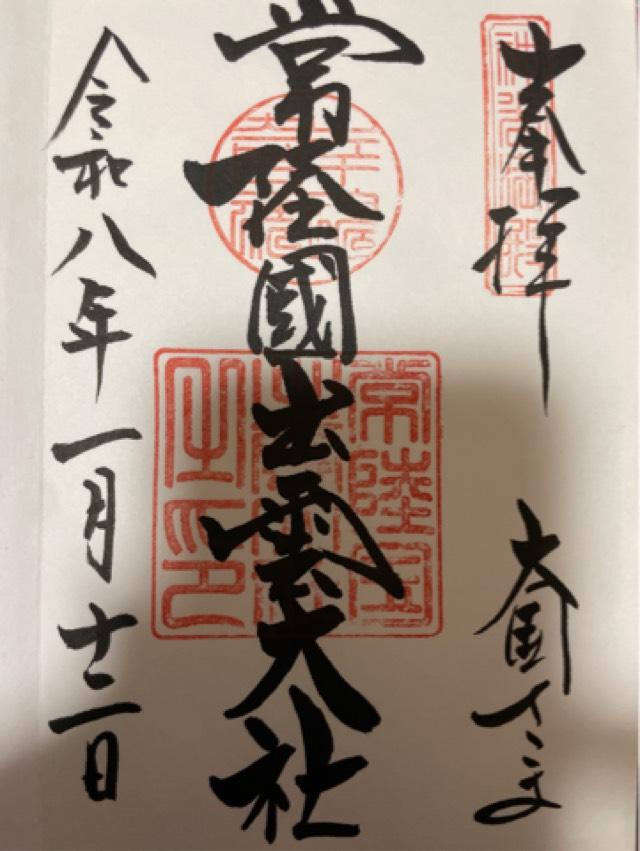 奉拝
大国さま
常陸國出雲大社
常陸国
之印
令和八年一月十二日